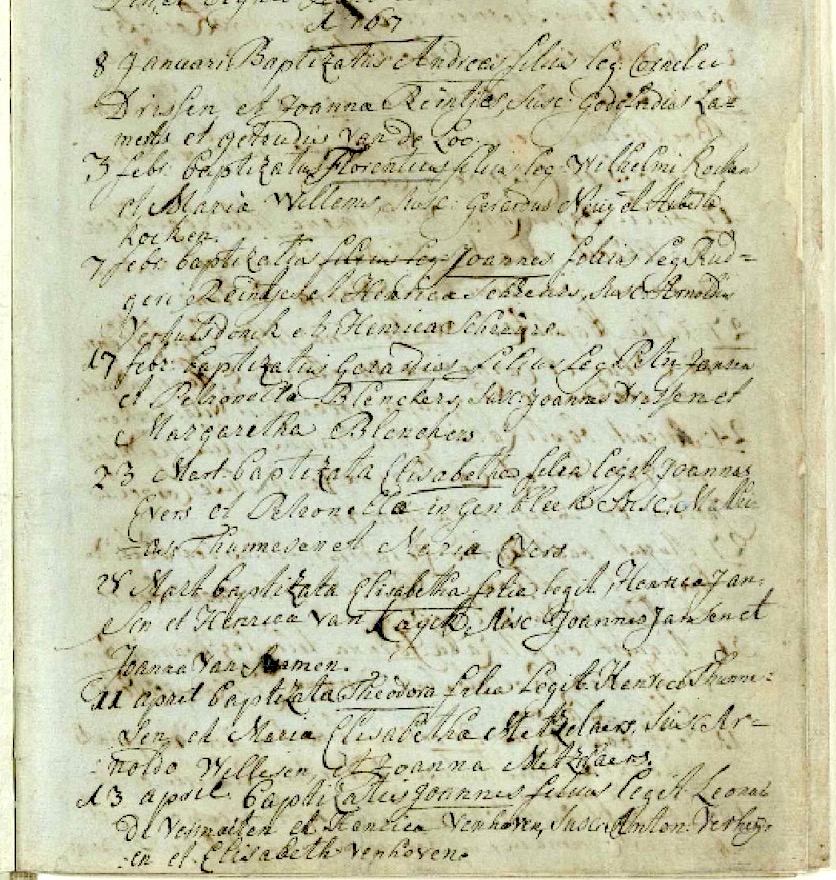 A 1767
8 Januari Baptizatus Andreas filius leg: Cornelii
Drissen et Joanna Reintjes, Susc: Godefridus La=
merts et gertrudis van de Loo.
3 febr: baptizatus Florentinus filius leg: Wilhelmi Kocken
et Maria Willems, Susc: Gerardus et Huberta
Kocken.
7 febr: baptizatus filius leg: Joannes filius leg: Rud=
geri Reintjes et Henrica Schreurs, Susc: Arnoldus
Verhulsdonck et Henrica Schreurs.
17 febr: baptizatus Gerardus filius leg: Petri Jansen
et Petronella Blenckers, Susc: Joannes Drissen et
Margaretha Blenckers
23 Mert baptizata Elisabetha filia legit: Joannis
Evers et Petronella in gen bleek Susc: Mathi=
=as Thunnesen et Maria Evers.
28 Mart baptizata Elisabetha filia legit: Henrici Jan=
sen et Henrica van Susc: Joannes Jansen et
Joanna Van
11 april baptizata Theodora filia Legit: Henrici Thunne=
sen et Maria Elisabetha Metzelaers, Susc: Ar=
noldo Willesen, et Joanna Metzelaers.
13 april baptizatus Joannes filius legit: Leonar
di Vermeulen et Henrica Venhoven, Susc: Anton: Verheij=
=en et Elisabeth Venhoven.